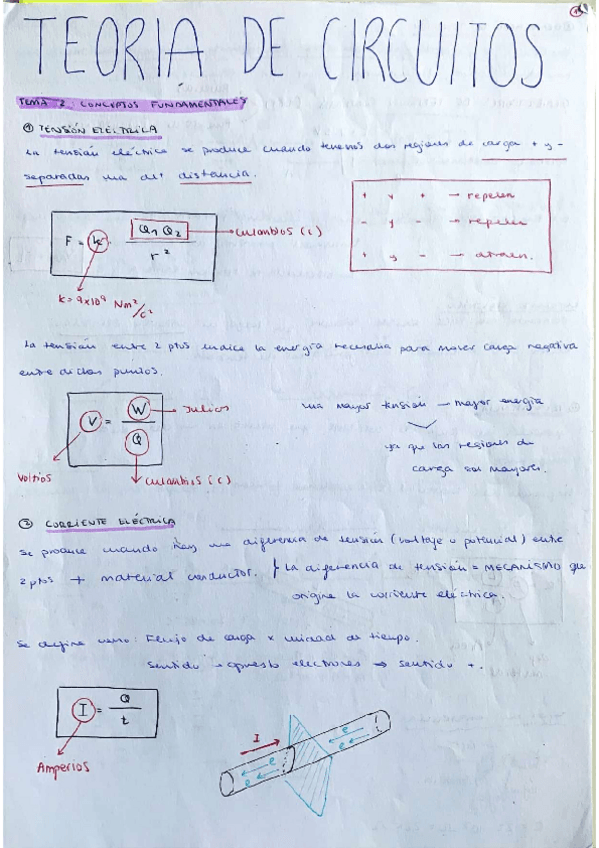 TEORIA DE CIRCUITOS
TEMA 2: CONCEPTOS FUNDAMENTALES
① TENSIÓN ELÉCTRICA
La tensión eléctrica se produce cuando tenemos dos regiones de carga + y -
separadas una det distancia.
+ y + → repelen
- y - → repelen
+ y - → atraen.
F = k Q1 Q2 / r² → culombios (C)
K = 9x10⁹ Nm²/C²
La tensión entre 2 ptos indica la energía necesaria para mover carga negativa
entre dichos puntos.
V = W / Q
Julios
Voltios
culombios (C)
una mayor tensión → mayor energía
ya que las regiones de
carga son mayores.
② CORRIENTE ELÉCTRICA
Se produce cuando hay una diferencia de tensión (voltaje o potencial) entre
2 ptos + material conductor. } La diferencia de tensión = MECANISMO que
origina la corriente eléctrica.
Se define como: Flujo de carga x unidad de tiempo.
Sentido → opuesto electrones → sentido +.
I = Q / t
Amperios
I
e e
e e